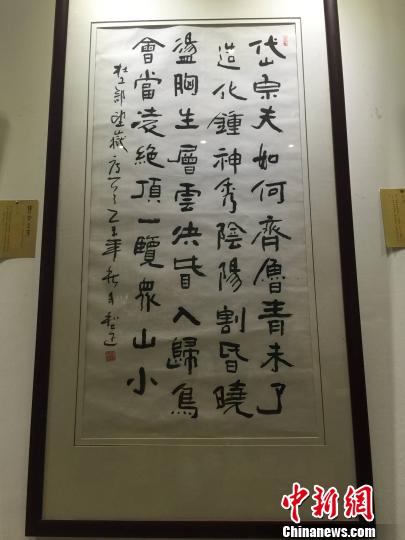 岱宗夫如何齊魯青未了
造化鍾神秀陰陽割昏曉
盪胸生層雲決眥入歸鳥
會當凌絕頂一覽眾山小
杜工部望嶽 乙未年秋月
中新网
Chinanews.com
中新網
www.chinanews.com